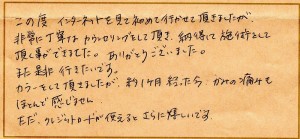 この度 インターネットを見て初めて行かせて頂きましたが、
非常に丁寧なカウンセリングをして頂き、納得して施術をして
頂く事ができました。ありがとうございました。
また是非行きたいです。
カラーをして頂きましたが、約1ヶ月経った今、かみの痛みも
ほとんど感じません。
ただ、クレジットカードが使えるとさらに嬉しいです。